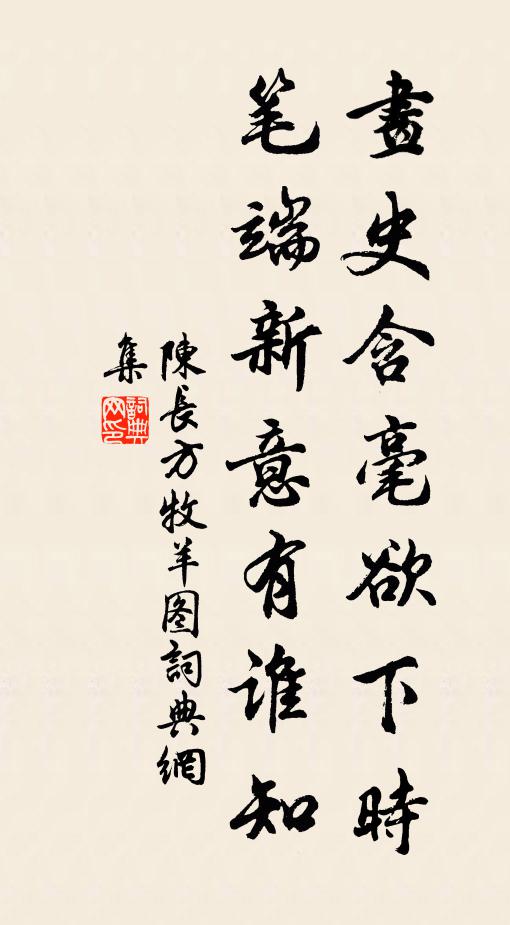 畫史含毫欲下時
笔端新意有誰知
陳長方牧羊图詞典網
集
詞典
网印